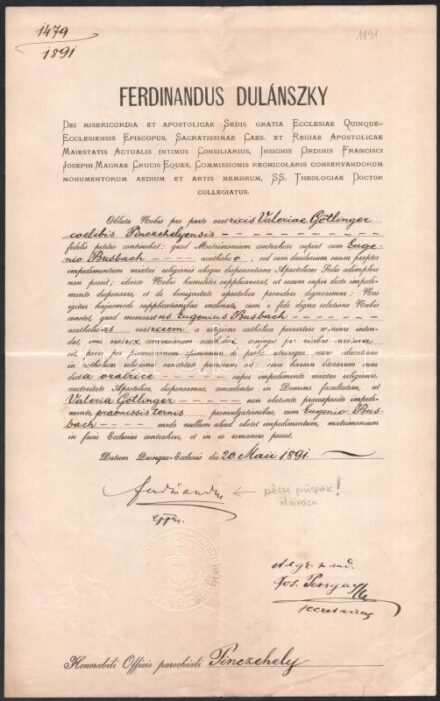 1479
1891
1891
FERDINANDUS DULÁNSZKY
DEI MISERICORDIA ET APOSTOLICAE SEDIS GRATIA ECCLESIAE QUINQUE-
ECCLESIENSIS EPISCOPUS, SACRATISSIMAE CAES. ET REGIAE APOSTOLICAE
MAIESTATIS ACTUALIS INTIMUS CONSILIARIUS, INSIGNIS ORDINIS FRANCISCI
JOSEPHI MAGNAE CRUCIS EQUES, COMMISSIONIS REGNICOLARIS CONSERVANDORUM
MONUMENTORUM AEDIUM ET ARTIS MEMBRUM, SS. THEOLOGIAE DOCTOR
COLLEGIATUS.
Oblata Nobis pro parte oratricis Valeriae Götlinger
coelibis Pinczehelyensis
fidelis petitio continebat: quod Matrimonium contrahere cupiat cum Euge-
nio Busbach acatholico, sed cum desiderium suum propter
impedimentum mixtae religionis absque dispensatione Apostolicae Sedis adimplere
non possit; idcirco Nobis humiliter supplicaverat, ut secum super dicto impedi-
mento dispensare, ac de benignitate apostolica providere dignaremur. Nos
igitur hujusmodi supplicationibus inclinati, cum a fide digna relatione Nobis
constet, quod memoratus Eugenius Busbach
acatholicus a religione catholica pervertere minime inten-
dat, imo conversionem acatholici conjugis pro viribus curatura
sit,
in catholica religione educandae forsan sit: vim harum literarum cum
dicta oratrice super impedimento mixtae religionis,
auctoritate Apostolica, dispensamus, concedentes in Domino facultatem, ut
Valeria Götlinger non obstante praefato impedi-
mento, praemissis ternis promulgationibus, cum Eugenio Bus-
bach modo nullum aliud obstet impedimentum, matrimonium
in facie Ecclesiae contrahere, et in eo remanere possit.
Datum Quinque-Ecclesiis die 20 Maii 1891
Ferdinandus ← pécsi püspök!
eppus. aláírása
secretarius
Honorabili Officio parochiali Pinczehely